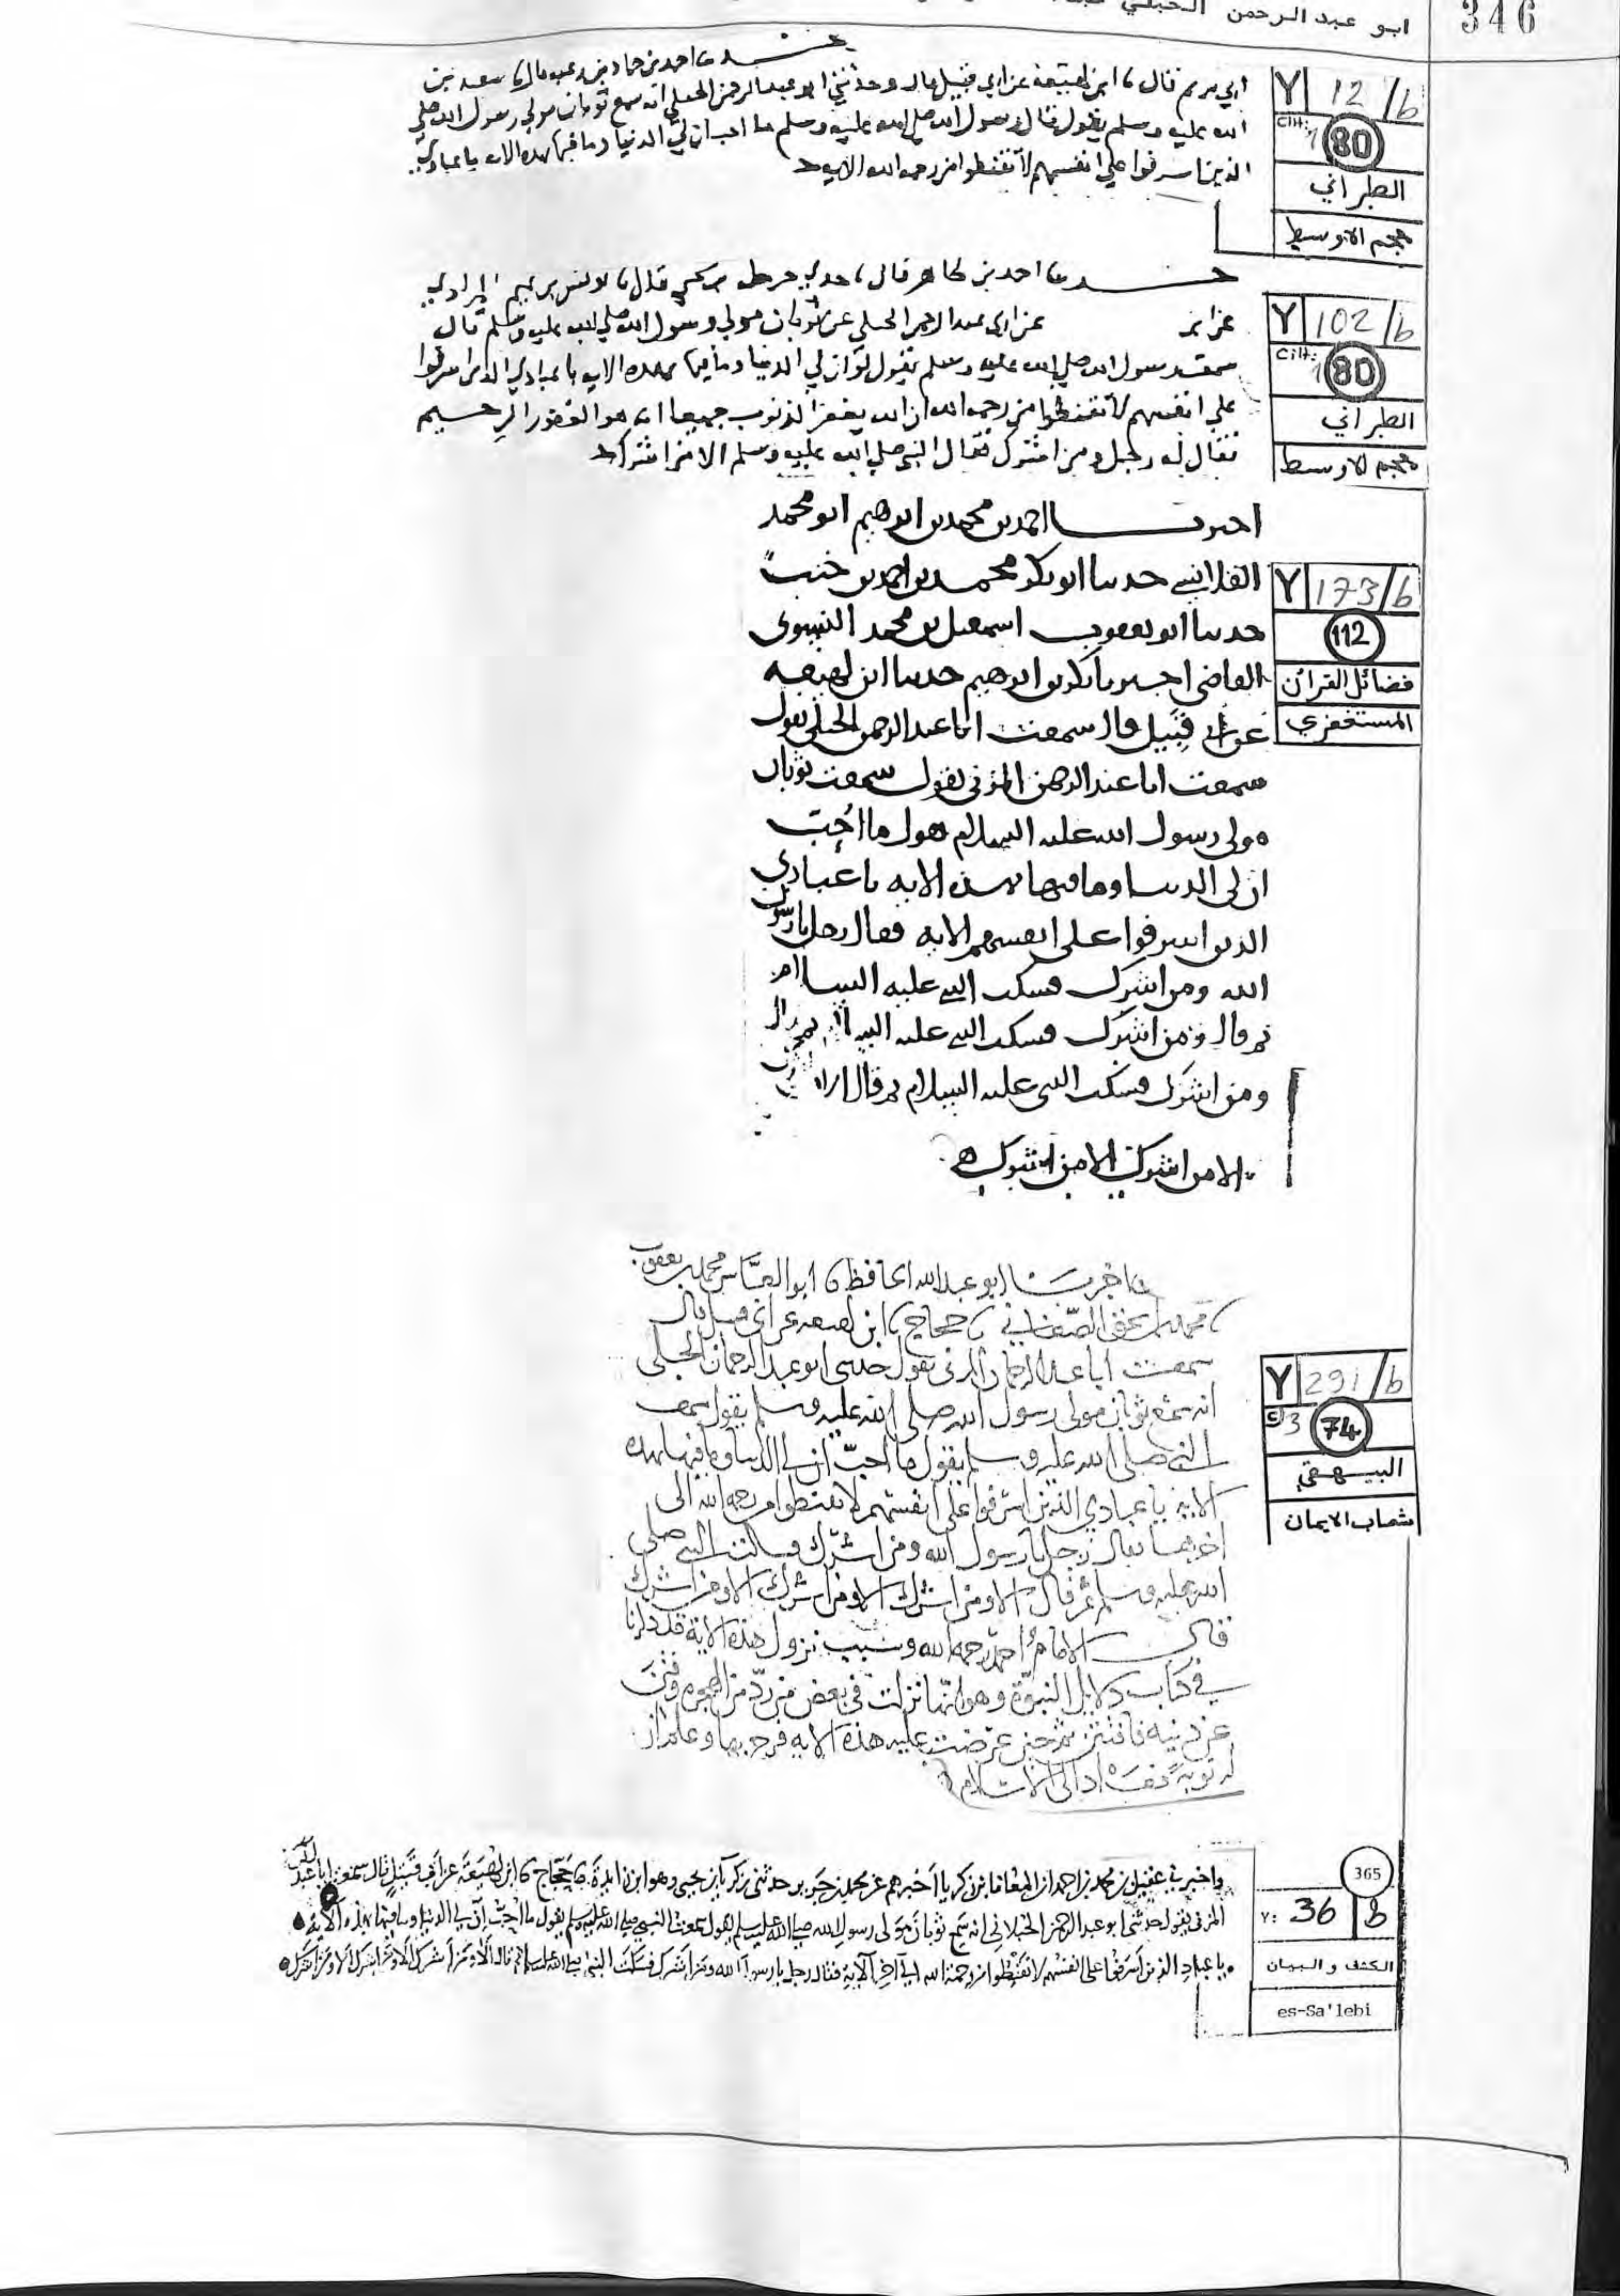 346
ابو عبد الرحمن الحبلي
Y 12/b
Cilt: 1 80
الطبراني
معجم الاوسط
حدثنا احمد بن حماد بن زغبه قال ثا سعيد بن
ابي مريم قال ثا ابن لهيعة عن ابي قبيل قال وحدثني ابو عبد الرحمن الحبلي انه سمع ثوبان مولي رسول الله صلي
الله عليه وسلم يقول قال رسول الله صلي الله عليه وسلم ما احب ان لي الدنيا وما فيها بهذه الاية يا عبادي
الذين اسرفوا علي انفسهم لا تقنطوا من رحمة الله الاية
Y 102/b
Cilt: 1 80
الطبراني
معجم الاوسط
حدثنا احمد بن طاهر قال ثا جدي حرمله بن يحيي قال ثا
عن ابي عبد الرحمن الحبلي عن ثوبان مولي رسول الله صلي الله عليه وسلم قال
سمعت رسول الله صلي الله عليه وسلم يقول لو ان لي الدنيا وما فيها بهذه الاية يا عبادي الذين اسرفوا
علي انفسهم لا تقنطوا من رحمة الله ان الله يغفر الذنوب جميعا انه هو الغفور الرحيم
فقال له رجل ومن اشرك فقال النبي صلي الله عليه وسلم الا من اشرك
Y 173/b
112
فضائل القرآن
المستغفري
اخبرنا احمد بن محمد بن ابرهيم ابو محمد
القلانسي حدثنا ابو بكر محمد بن احمد بن خنب
حدثنا ابو يعقوب اسمعيل بن محمد النسوى
القاضى اخبرنا بكر بن ابرهيم حدثنا ابن لهيعه
عن ابى قبيل قال سمعت ابا عبد الرحمن الحبلى يقول
سمعت ابا عبد الرحمن المزنى يقول سمعت ثوبان
مولى رسول الله عليه السلام يقول ما احب
ان لى الدنيا وما فيها بهذه الايه يا عبادي
الذين اسرفوا على انفسهم الايه فقال رجل يا رسول
الله ومن اشرك فسكت النبي عليه السلام
ثم قال ومن اشرك فسكت النبي عليه السلام ثم قال
ومن اشرك فسكت النبى عليه السلام ثم قال الا
الا من اشرك الا من اشرك
Y 291/b
C 3 74
البيهقي
شعاب الايمان
اخبرنا ابو عبد الله الحافظ ثا ابو العباس محمد بن يعقوب
ثا محمد بن اسحق الصغاني ثا حجاج ثا ابن لهيعه عن ابى قبيل قال
سمعت ابا عبد الرحمان المزنى يقول حدثنى ابو عبد الرحمان الحبلى
انه سمع ثوبان مولى رسول الله صلى الله عليه وسلم يقول سمعت
النبي صلى الله عليه وسلم يقول ما احب ان لي الدنيا وما فيها بهذه
الاية يا عبادي الذين اسرفوا على انفسهم لا تقنطوا من رحمة الله الى
اخرها فقال رجل يا رسول الله ومن اشرك فسكت النبي صلى
الله عليه وسلم ثم قال الا ومن اشرك الا ومن اشرك الا ومن اشرك
قال الامام احمد رحمه الله وسبب نزول هذه الاية قد ذكرنا
في كتاب دلايل النبوة وهو انها نزلت في بعض من رد من الهجره وفتن
عن دينه فافتتن ثم حين عرضت عليه هذه الايه فرح بها وعلم ان
له توبة فعاد الى الاسلام
365
Y: 36 B
الكشف والبيان
es-Sa'lebi
واخبرني عقيل بن محمد بن احمد ان المعافا بن زكريا اخبرهم عن محمد بن جرير حدثنى زكريا بن يحيى وهو ابن ابى زائدة ثا حجاج ثا ابن لهيعة عن ابي قبيل قال سمعت ابا عبد الرحمن
المزنى يقول حدثنى ابو عبد الرحمن الجبلانى انه سمع ثوبان مولى رسول الله صلى الله عليه وسلم يقول سمعت النبي صلى الله عليه وسلم يقول ما احب ان لي الدنيا وما فيها بهذه الاية
يا عبادي الذين اسرفوا على انفسهم لا تقنطوا من رحمة الله الى آخر الآية فقال رجل يا رسول الله ومن اشرك فسكت النبي صلى الله عليه وسلم ثم قال الا ومن اشرك الا ومن اشرك الا ومن اشرك